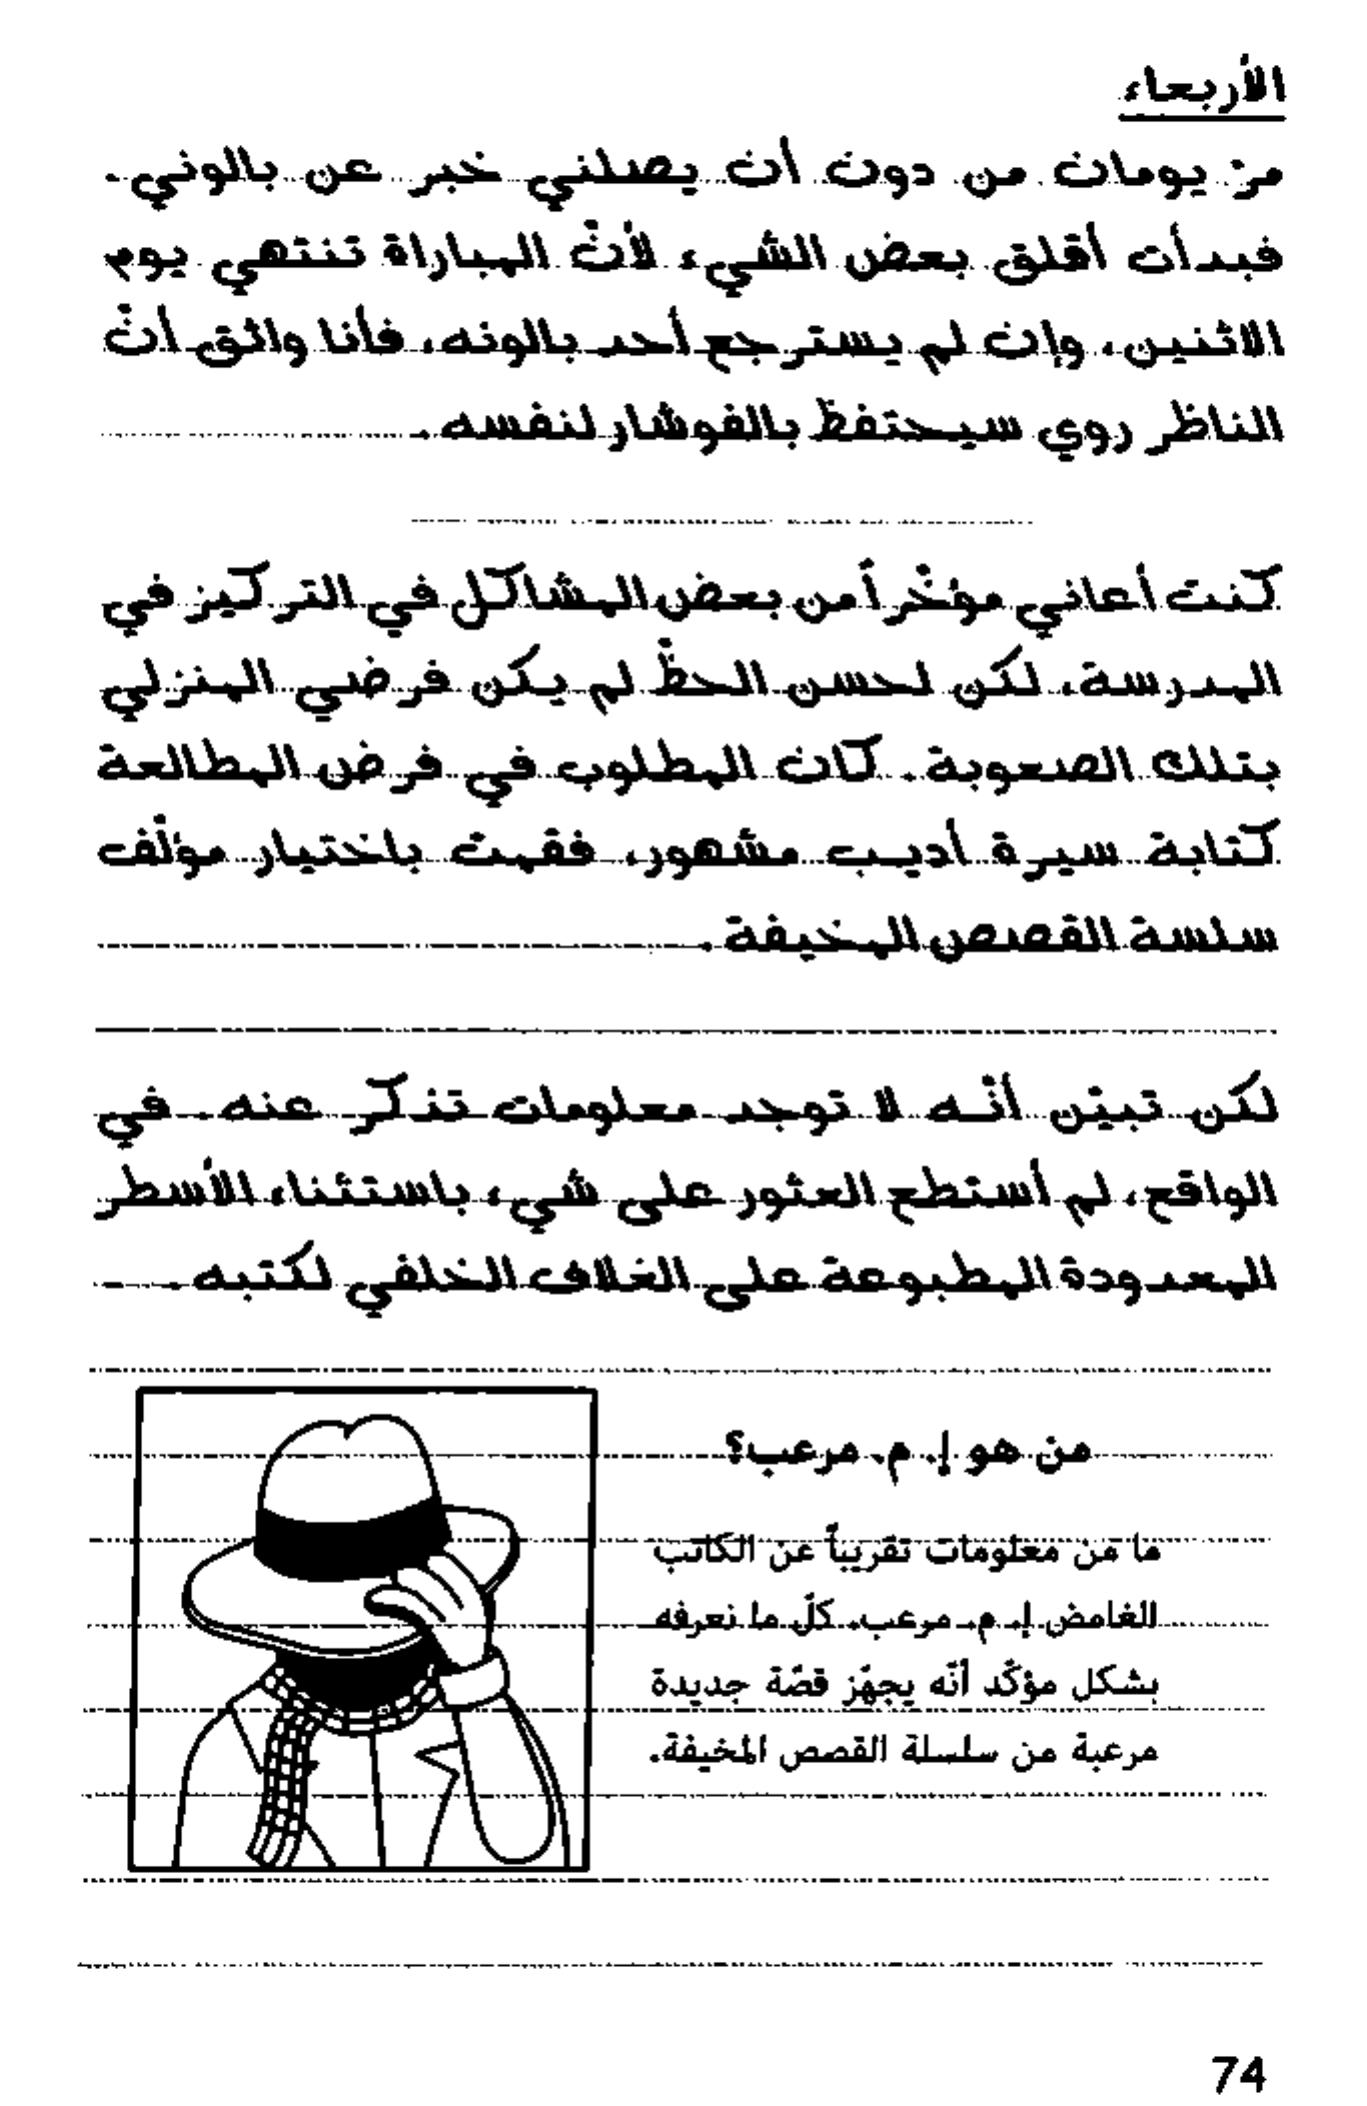 الأربعاء
مرّ يومان من دون أن يصلني خبر عن بالوني.
فبدأت أقلق بعض الشيء لأنّ المباراة تنتهي يوم
الاثنين، وإن لم يسترجع أحد بالونه، فأنا واثق أنّ
الناظر روي سيحتفظ بالفوشار لنفسه.
كنت أعاني مؤخّراً من بعض المشاكل في التركيز في
المدرسة، لكن لحسن الحظّ لم يكن فرضي المنزلي
بتلك الصعوبة. كان المطلوب في فرض المطالعة
كتابة سيرة أديب مشهور، فقمت باختيار مؤلّف
سلسة القصص المخيفة.
لكن تبيّن أنّه لا توجد معلومات تذكر عنه. في
الواقع، لم أستطع العثور على شيء باستثناء الأسطر
المعدودة المطبوعة على الغلاف الخلفي لكتبه.
من هو إ. م. مرعب؟
ما من معلومات تقريباً عن الكاتب
الغامض إ. م. مرعب. كلّ ما نعرفه
بشكل مؤكّد أنّه يجهّز قصّة جديدة
مرعبة من سلسلة القصص المخيفة.
74